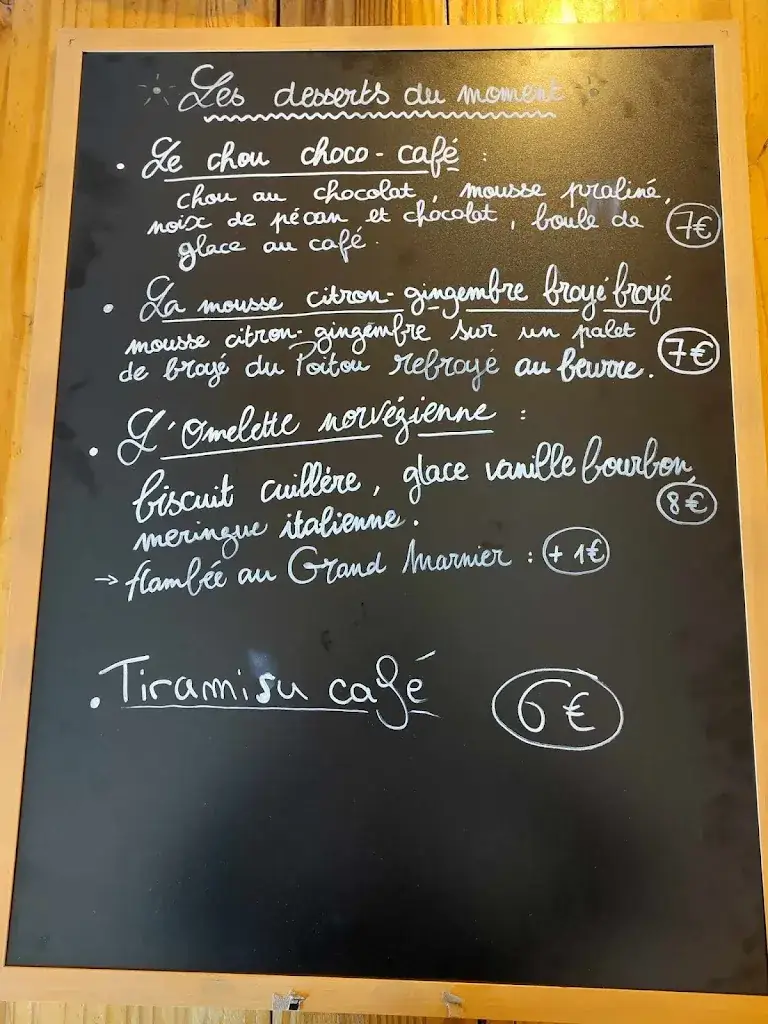 Les desserts du moment
• Le chou choco-café :
chou au chocolat, mousse praliné,
noix de pécan et chocolat, boule de
glace au café. 7€
• La mousse citron-gingembre broyé broyé
mousse citron-gingembre sur un palet
de broyé du Poitou rebroyé au beurre. 7€
• L'Omelette norvégienne :
biscuit cuillère, glace vanille bourbon,
meringue italienne. 8€
→ flambée au Grand Marnier : + 1€
• Tiramisu café 6€